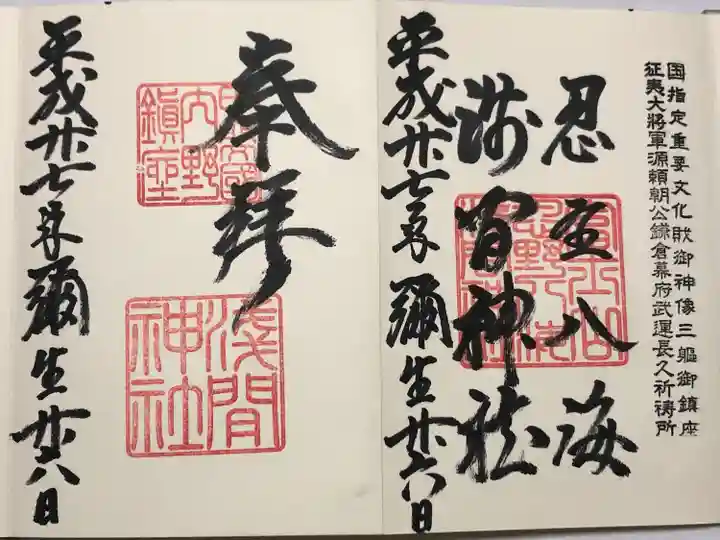 国指定重要文化財御神像三躯御鎮座
征夷大将軍源頼朝公鎌倉幕府武運長久祈祷所
忍草八海
浅間神社
平成廿七年彌生廿八日
奉拝
内野
鎮座
浅間
神社
平成廿七年彌生廿八日